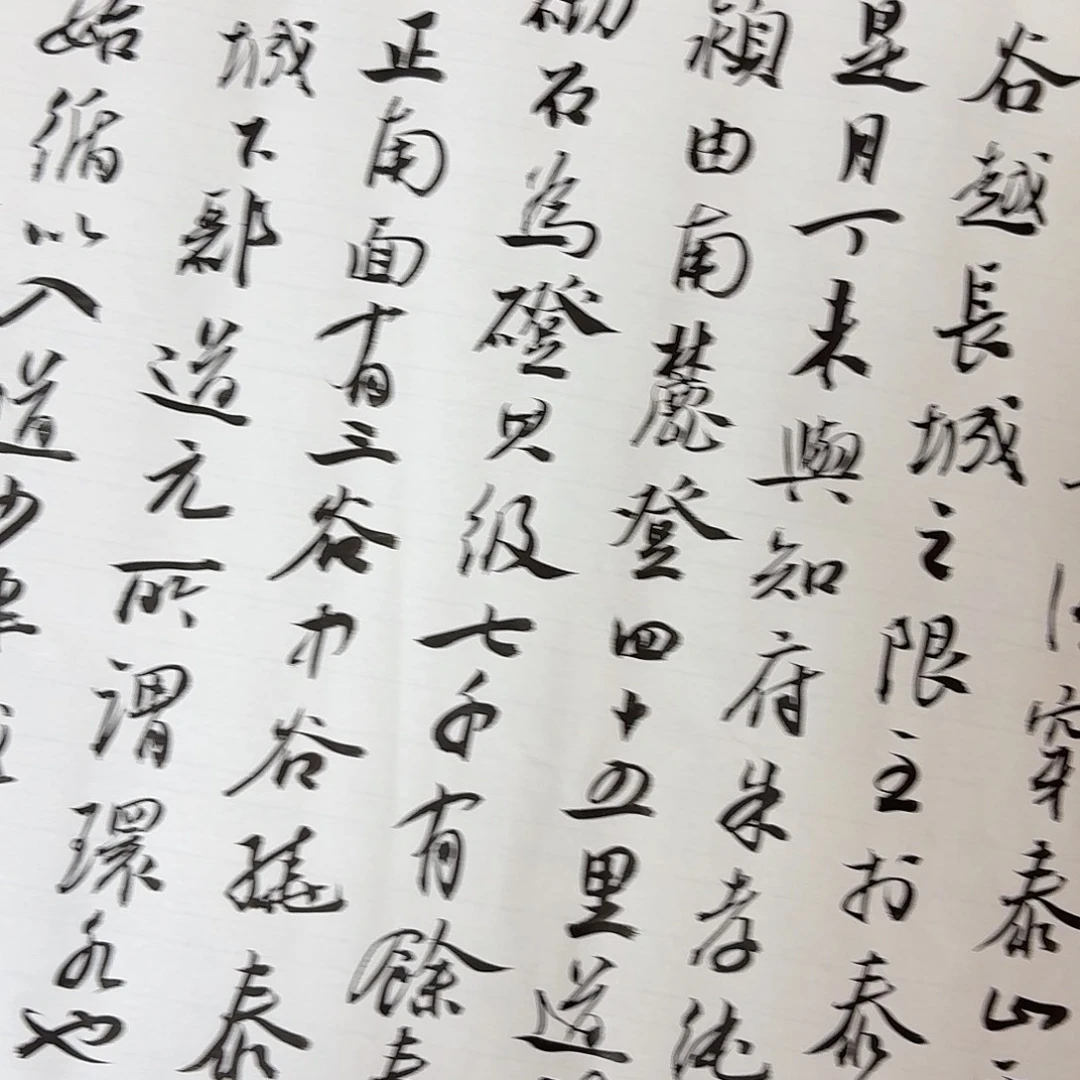 穿泰山
谷越長城之限至於泰
是月丁未與知府朱孝純
潁由南麓登四十五里道
石為磴其級七千有餘
正南面有三谷中谷繞泰
城下酈道元所謂環水也
始循以入道少半